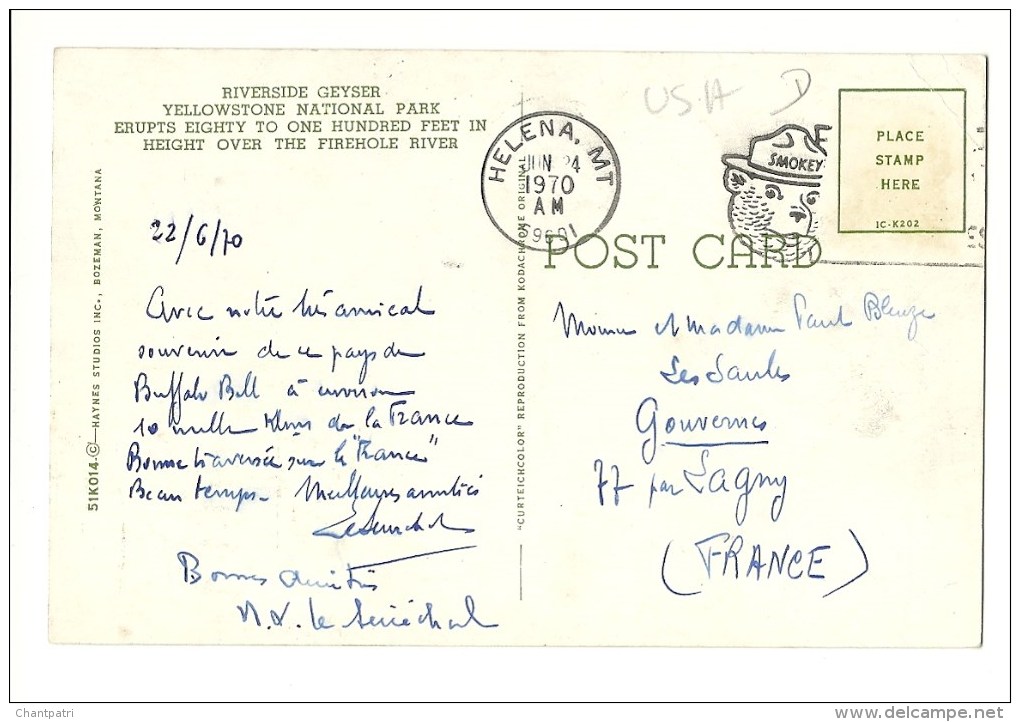 RIVERSIDE GEYSER
YELLOWSTONE NATIONAL PARK
ERUPTS EIGHTY TO ONE HUNDRED FEET IN
HEIGHT OVER THE FIREHOLE RIVER
51K014-©-HAYNES STUDIOS INC., BOZEMAN, MONTANA
22/6/70
Avec notre très amical
souvenir de ce pays de
Buffalo Bill à environ
10 mille Kms de la France
Bonne traversée sur le "France"
Beau temps. Meilleures amitiés
Bonnes amitiés
le Sénéchal
"CURTEICHCOLOR" REPRODUCTION FROM KODACHROME ORIGINAL
USA D
HELENA, MT
JUN 24
1970
AM
SMOKEY
PLACE
STAMP
HERE
IC-K202
POST CARD
et Madame Paul
Les Saules
Gouvernes
77 par Lagny
(FRANCE)
Chantpatri
www.delcampe.net